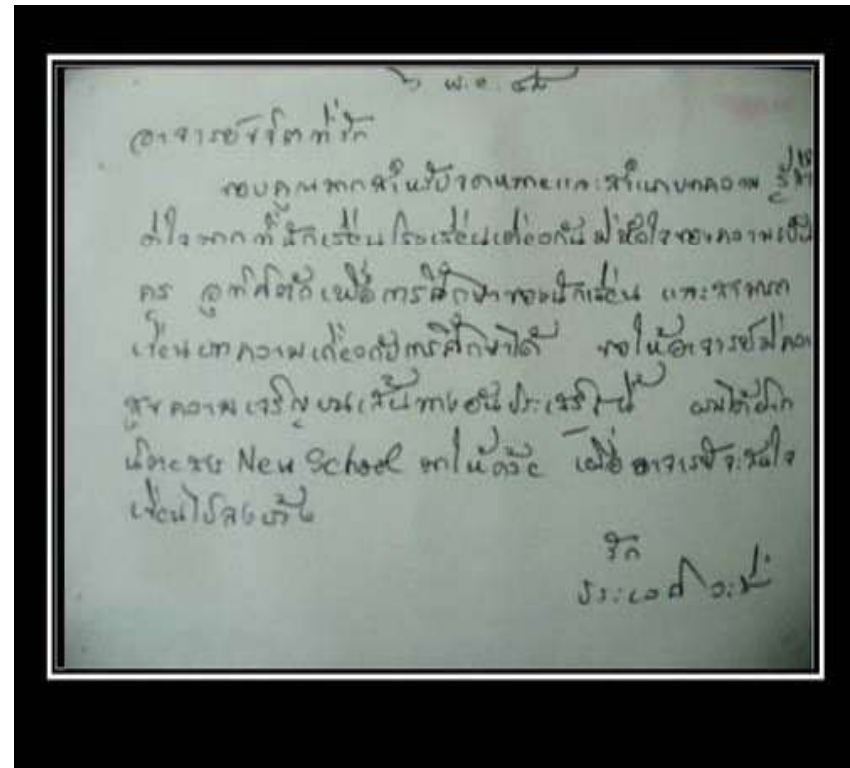 ๖ พ.ค. ๔๕
อาจารย์ที่รัก
ขอบคุณมากสำหรับจดหมายและสำเนาบทความ
ดีใจมากที่นักเรียนโรงเรียน มีหัวใจของความเป็น
ครู อุทิศตัวเพื่อการศึกษาของนักเรียน และสามารถ
เขียนบทความเกี่ยวกับการศึกษาได้ ขอให้อาจารย์มีความ
สุขความเจริญบนเส้นทางอันประเสริฐนี้ ผมได้ฝาก
New School มาให้ด้วย เผื่ออาจารย์จะสนใจ
เขียนไปลงบ้าง
รัก
ประเวศ วะสี